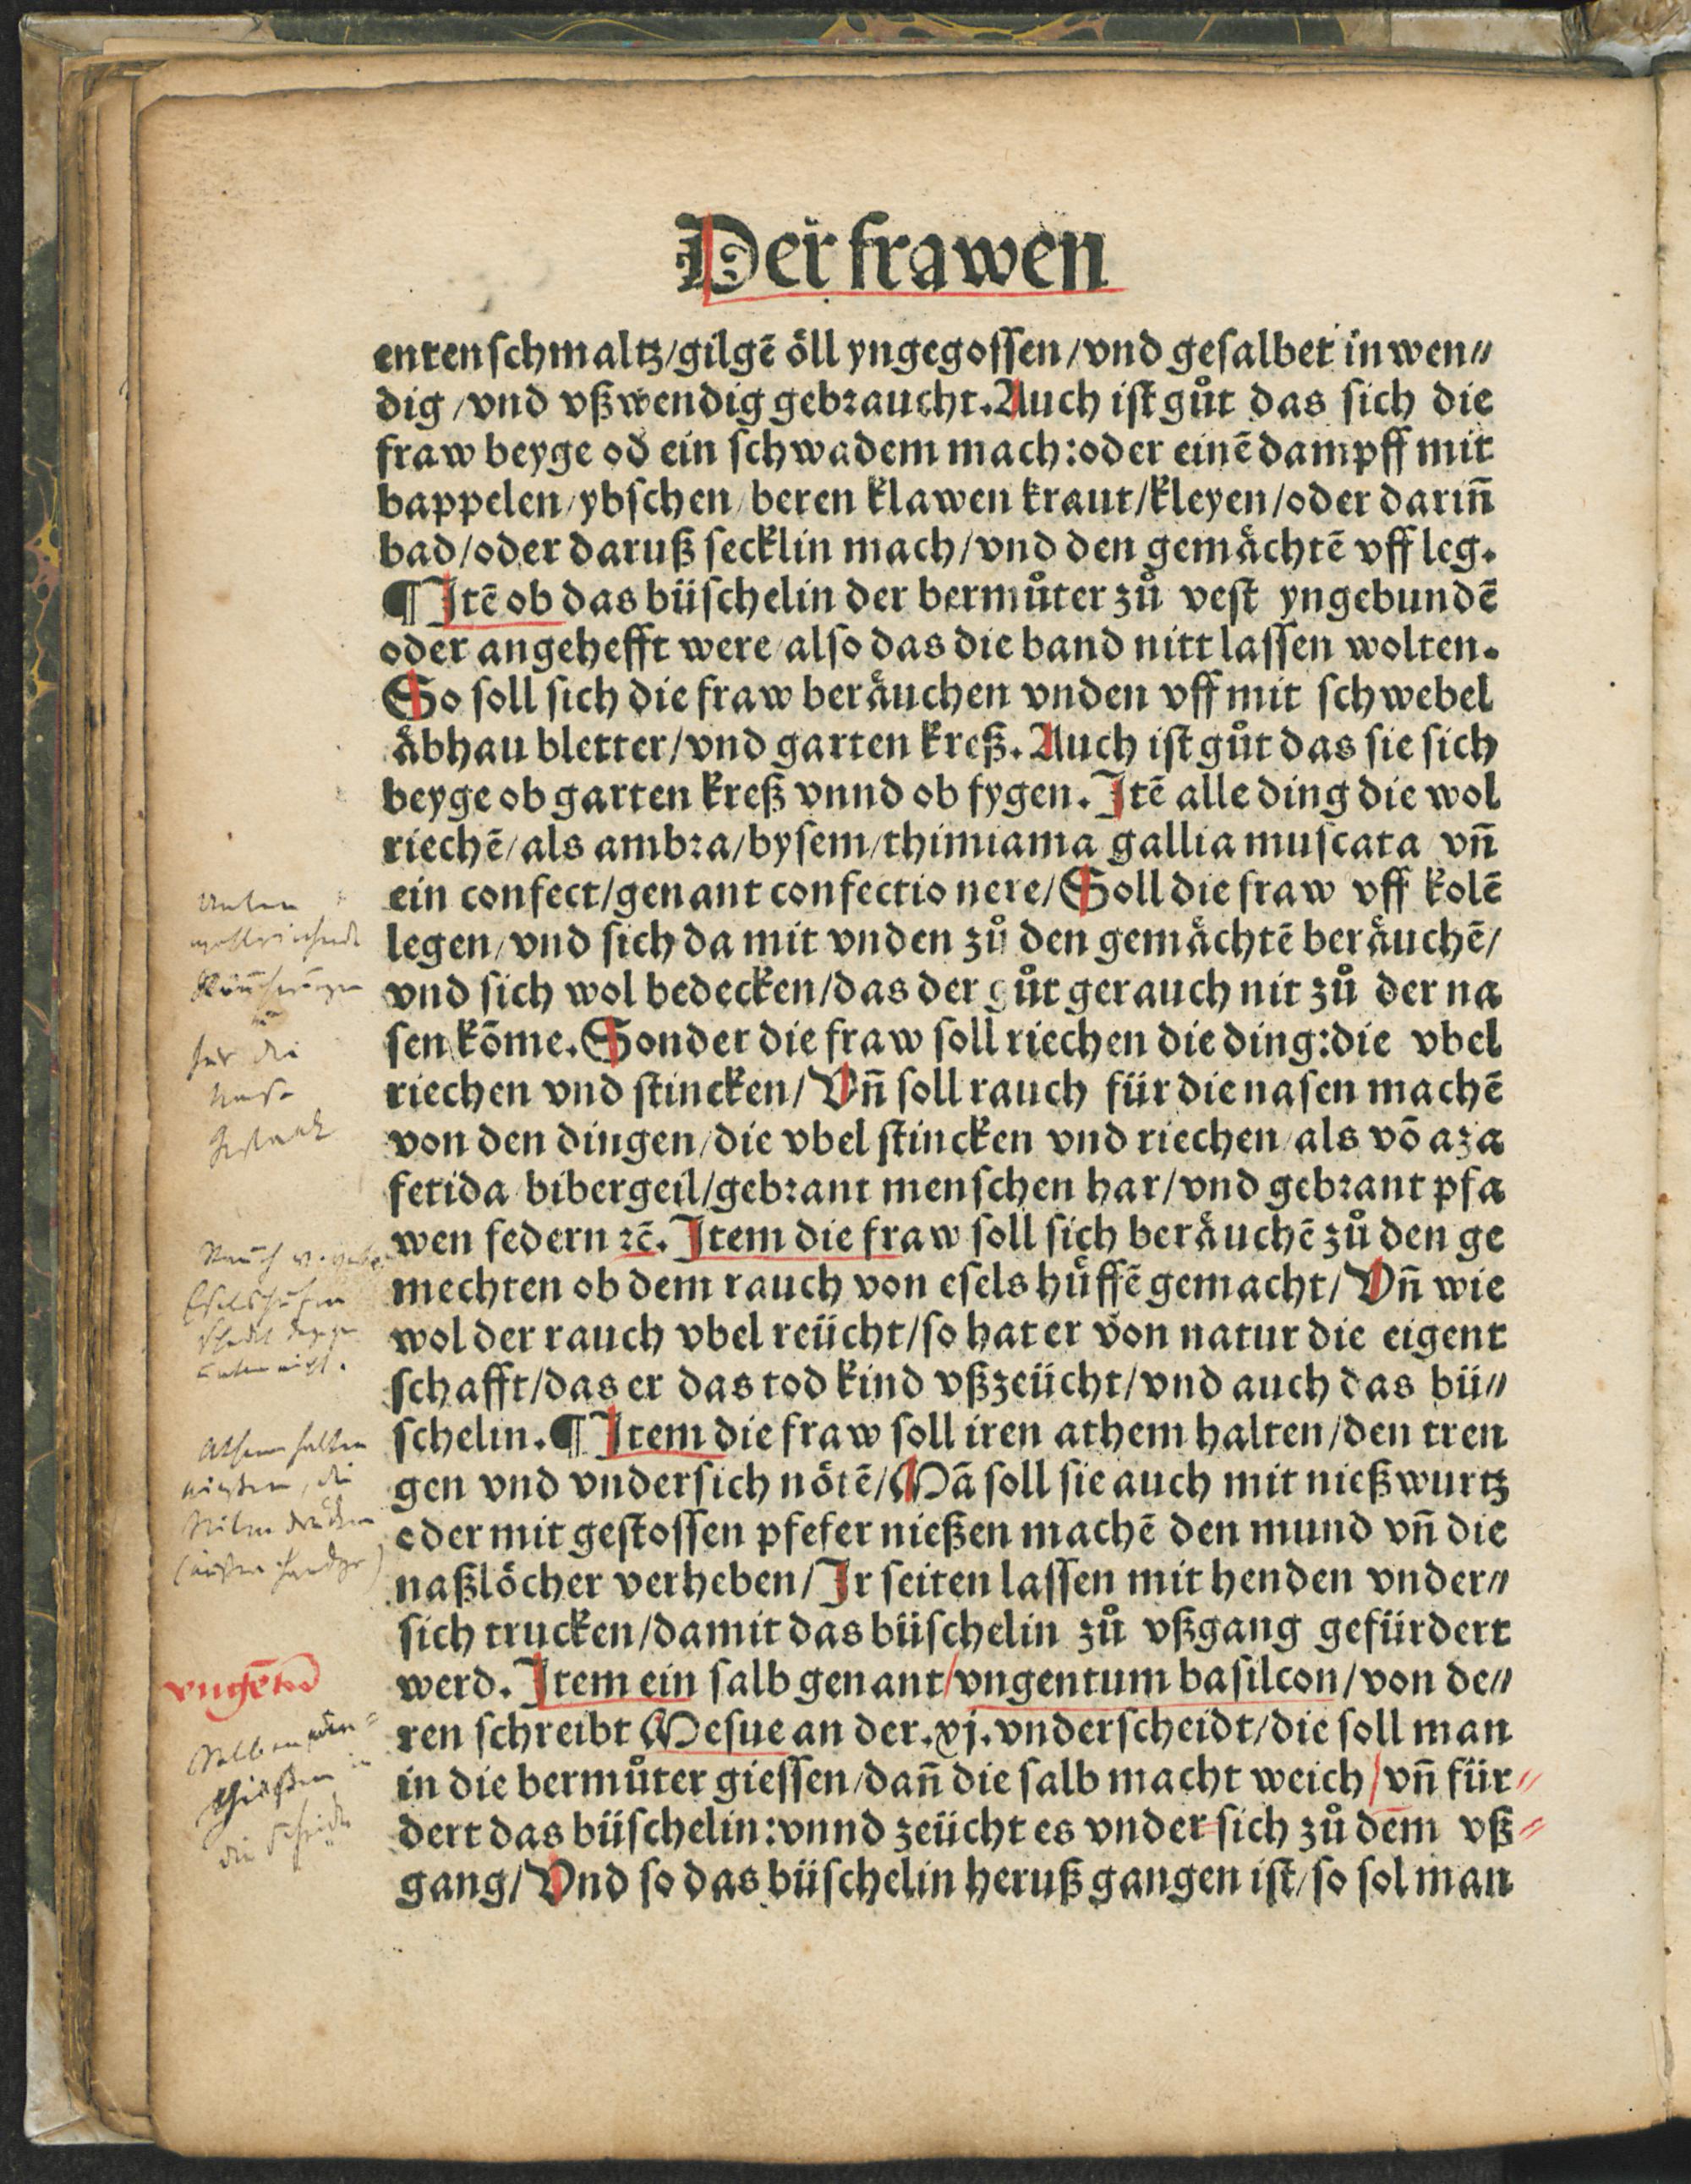 Der frawen
entenschmaltz/gilgē öll yngegossen/vnd gesalbet inwen⸗
dig/vnd vßwendig gebraucht.Auch ist gůt das sich die
fraw beyge od ein schwadem mach:oder einē dampff mit
bappelen/ybschen/beren klawen kraut/kleyen/oder dariñ
bad/oder daruß secklin mach/vnd den gemächtē vff leg.
¶Itē ob das büschelin der bermůter zů vest yngebundē
oder angehefft were/also das die band nitt lassen wolten.
So soll sich die fraw beräuchen vnden vff mit schwebel
äbhau bletter/vnd garten kreß. Auch ist gůt das sie sich
beyge ob garten kreß vnnd ob fygen. Itē alle ding die wol
riechē/als ambra/bysem/thimiama gallia muscata/vñ
ein confect/genant confectio nere/Soll die fraw vff kolē
legen/vnd sich da mit vnden zů den gemächtē beräuchē/
vnd sich wol bedecken/das der gůt gerauch nit zů der na
sen kōme.Sonder die fraw soll riechen die ding:die vbel
riechen vnd stincken/Vñ soll rauch für die nasen machē
von den dingen/die vbel stincken vnd riechen/als vō aza
fetida/bibergeil/gebrant menschen har/vnd gebrant pfa
wen federn ꝛc̄. Item die fraw soll sich beräuchē zů den ge
mechten ob dem rauch von esels hůffē gemacht/Vñ wie
wol der rauch vbel reücht/so hat er von natur die eigent
schafft/das er das tod kind vßzeücht/vnd auch das bü⸗
schelin.¶Item die fraw soll iren athem halten/den tren
gen vnd vndersich nötē/Mā soll sie auch mit nießwurtz
oder mit gestossen pfefer nießen machē den mund vñ die
naßlöcher verheben/Ir seiten lassen mit henden vnder⸗
sich trucken/damit das büschelin zů vßgang gefürdert
werd. Item ein salb genant/vngentum basilcon/von de⸗
ren schreibt Mesue an der.xj.vnderscheidt/die soll man
in die bermůter giessen/dañ die salb macht weich/vñ für⸗
dert das büschelin:vnnd zeücht es vnder-sich zů dem vß⸗
gang/Vnd so das büschelin heruß gangen ist/so sol man
für die
Nase
Gestank
Athem halten